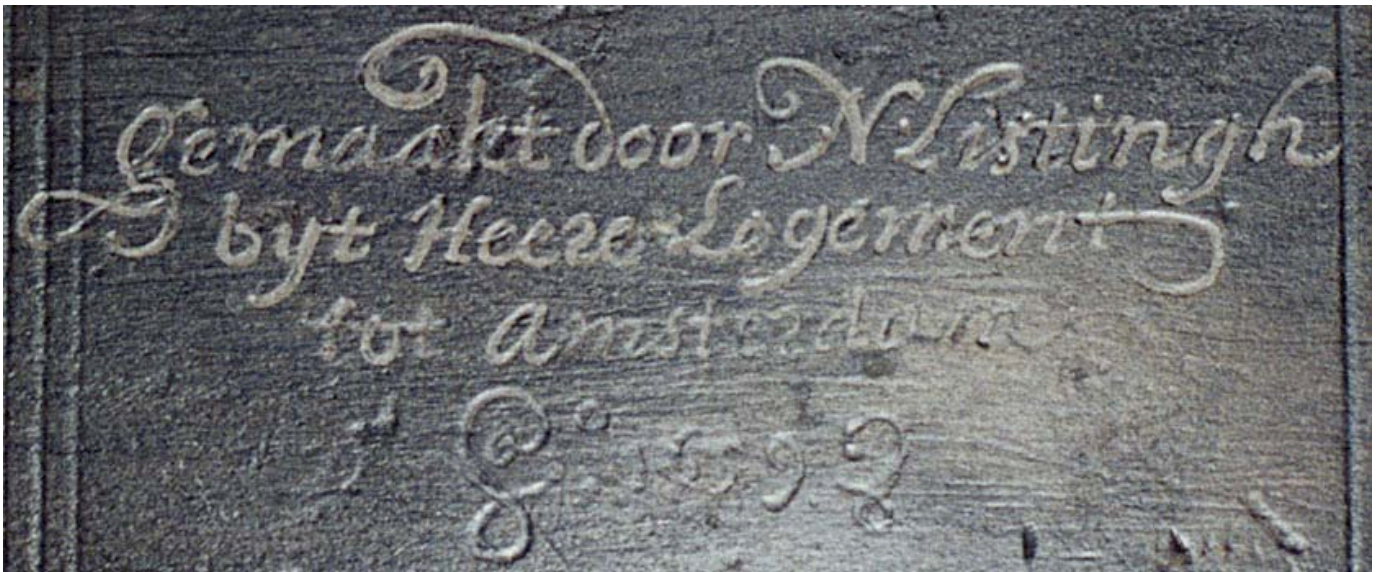 Gemaakt door N. Listingh
byt Heere Logement
tot Amsterdam
Ao. 1692